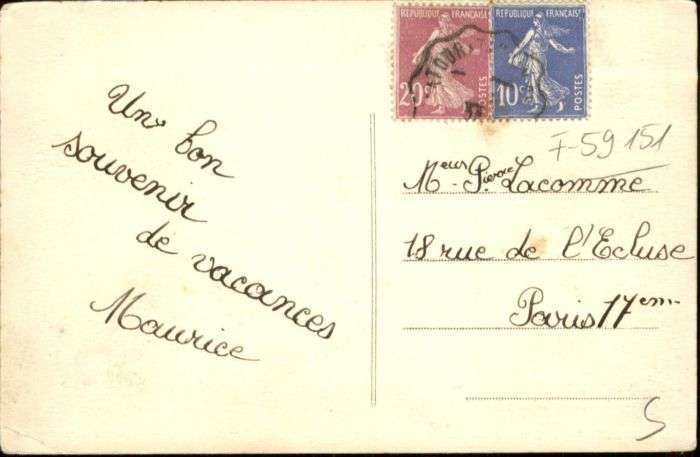 Un bon
souvenir
de vacances
Maurice
REPUBLIQUE FRANÇAISE
20c
POSTES
REPUBLIQUE FRANÇAISE
10c
POSTES
F-59151
Meus Pierre Lacomme
18 rue de l'Ecluse
Paris 17em
S